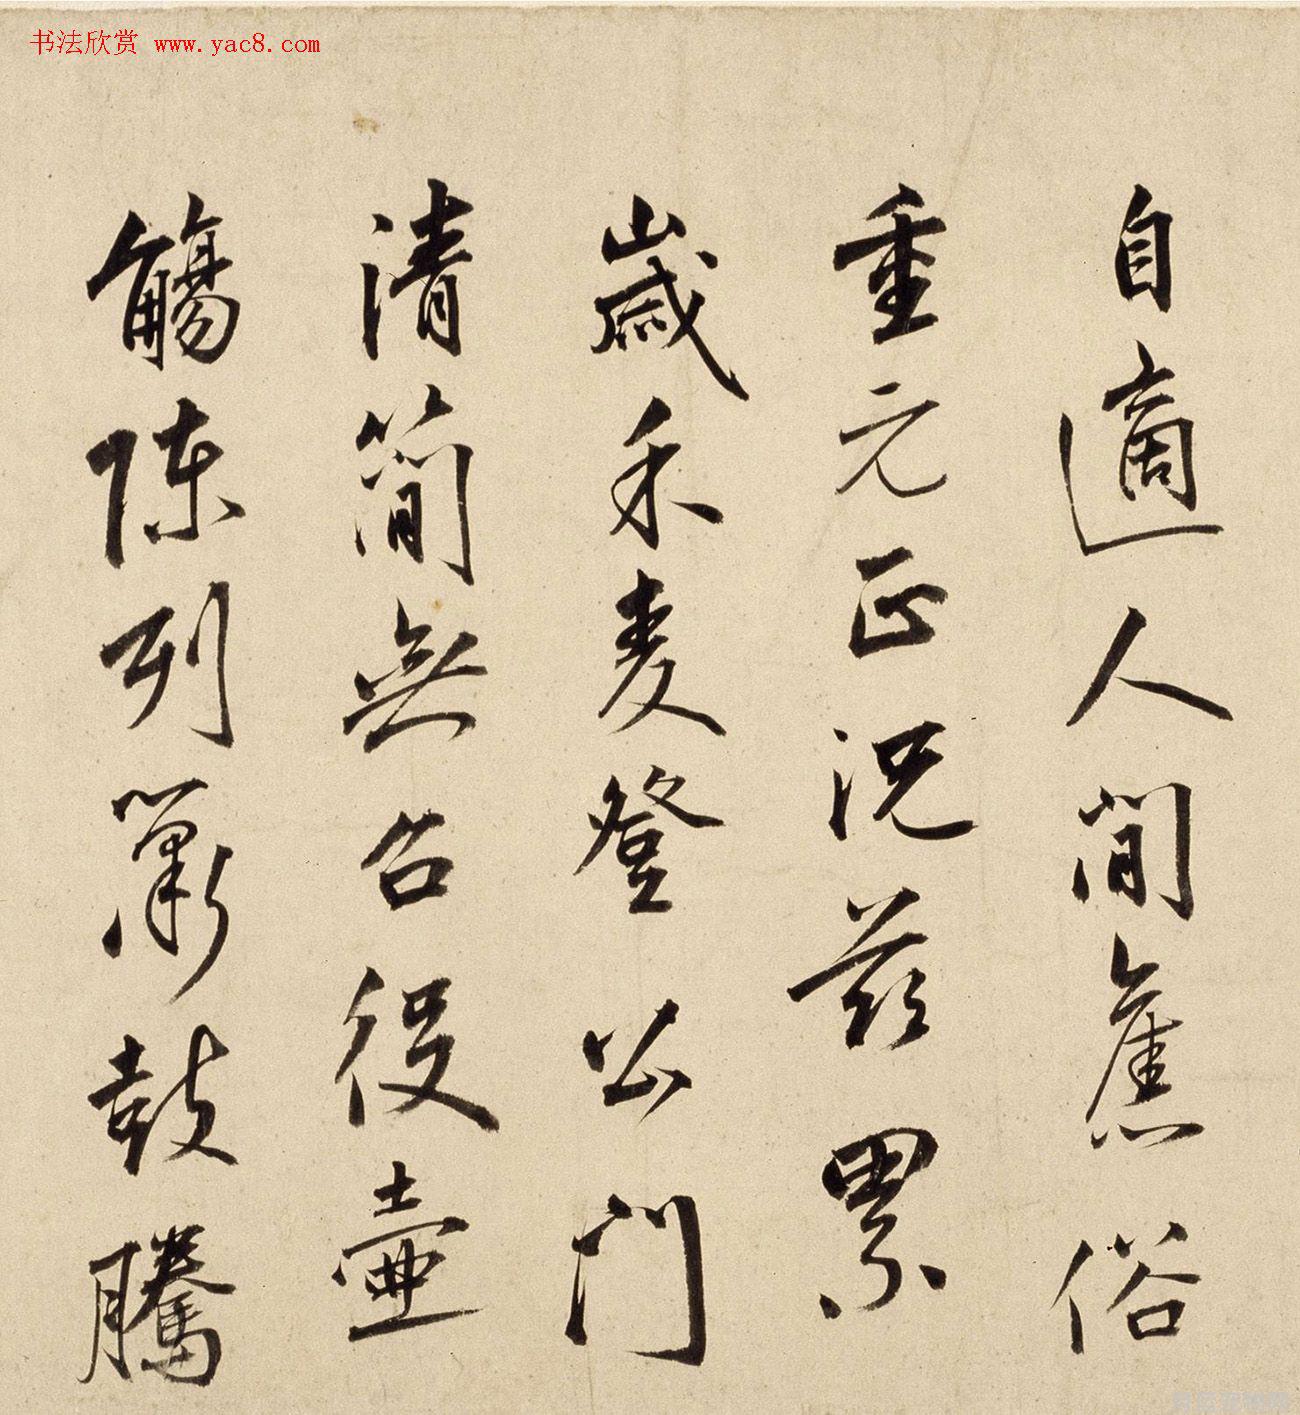 书法欣赏 www.yac8.com
自適人間舊俗
重元正況茲累
歲禾麥登公門
清簡無召役壺
觴陳列簫鼓騰